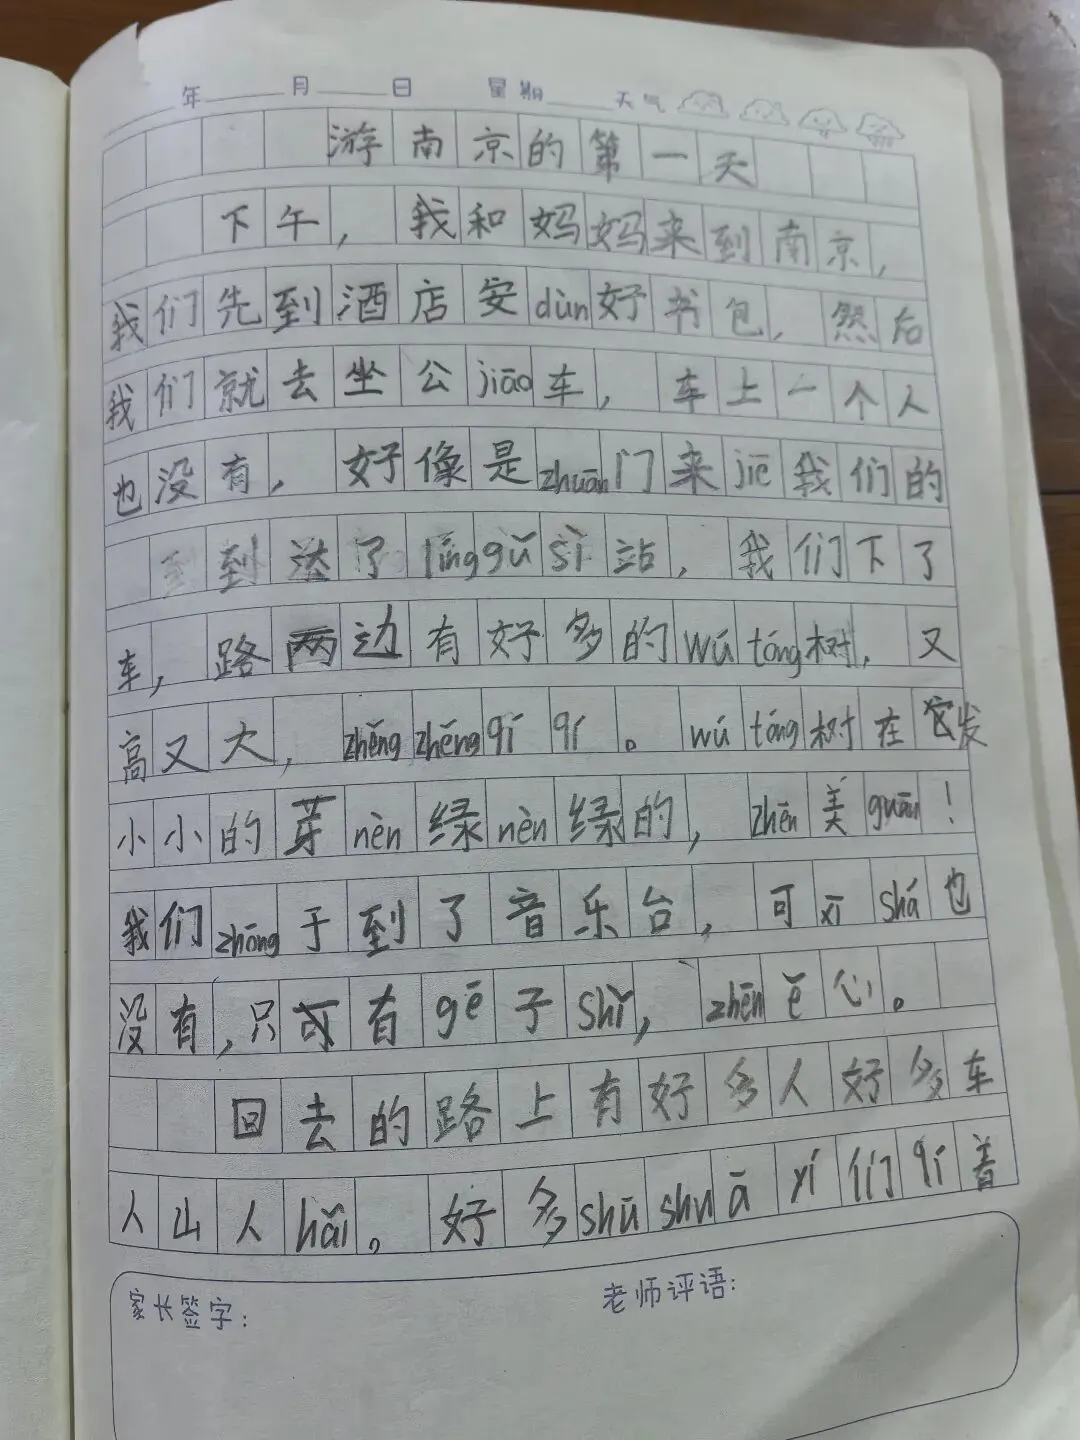 年 月 日 星期 天气
游南京的第一天
下午，我和妈妈来到南京，
我们先到酒店安dùn好书包，然后
我们就去坐公jiāo车，车上一个人
也没有，好像是zhuān门来jiē我们的
到达了língǔ sì站，我们下了
车，路两边有好多的wú tóng树，又
高又大，zhěng zhěng qí qí。wú tóng树在发
小小的芽nèn绿nèn绿的，zhēn美guān！
我们zhōng于到了音乐台，可xī shá也
没有，只可有gē子shǐ，zhēn ě心。
回去的路上有好多人好多车
人山人hǎi。好多shū shu ā yí们qí着
家长签字：
老师评语：